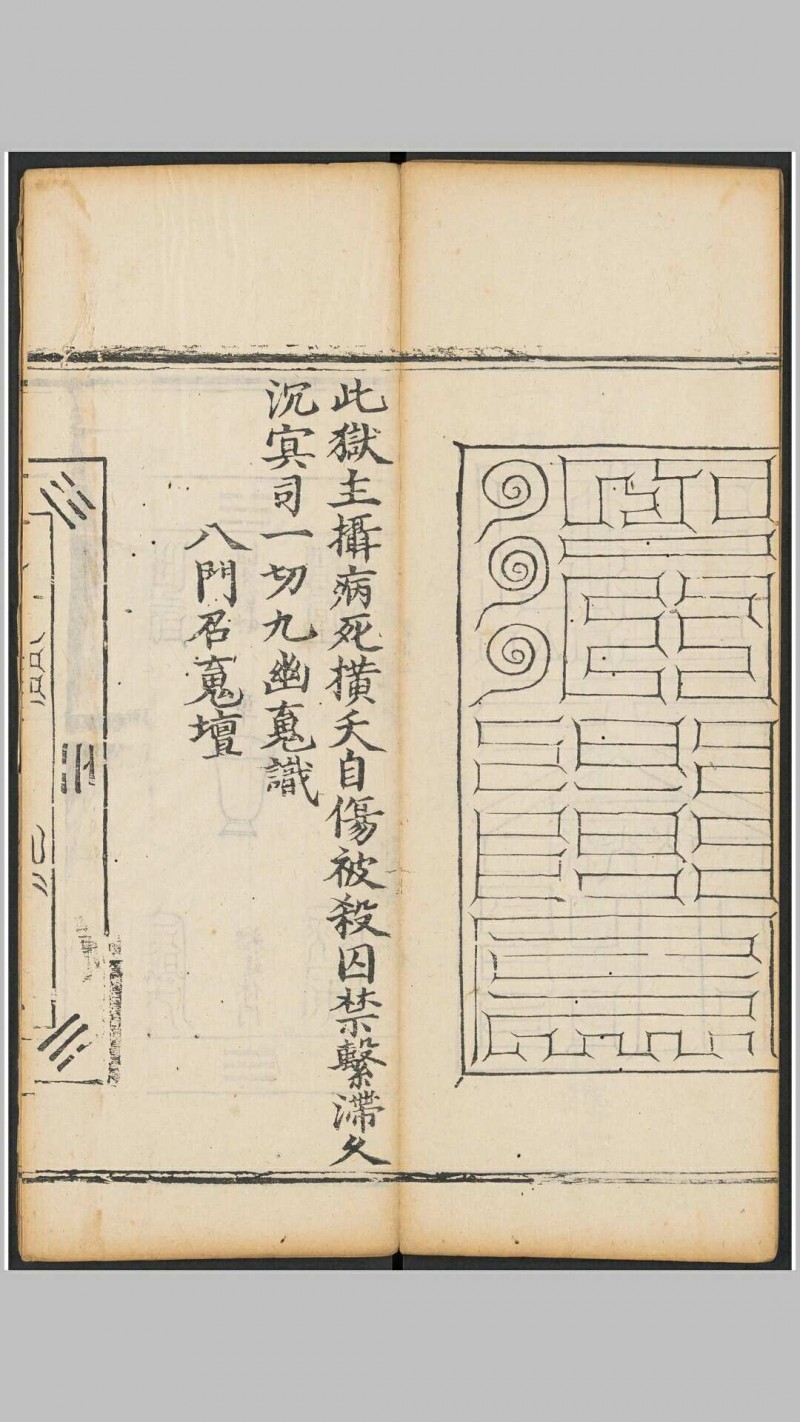 此獄主攝病死横夭自傷被殺囚禁繫滯久
沉寘司一切九幽䰟識
八門召䰟壇